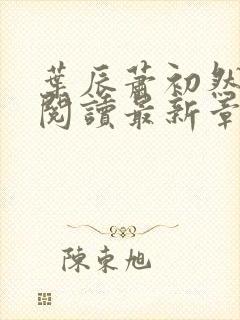 葉辰蕭初然
閱讀最新章
陳東旭